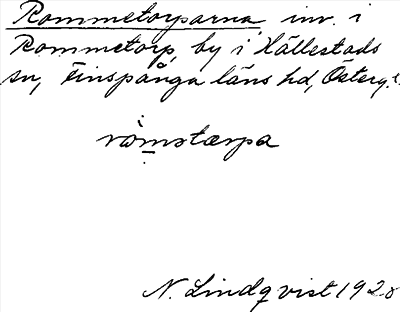 Rommetorparna, inv. i
Rommetorp, by i Hällestads
sn, Finspånga läns hd, Österg.
römstærpa
N. Lindqvist 1928